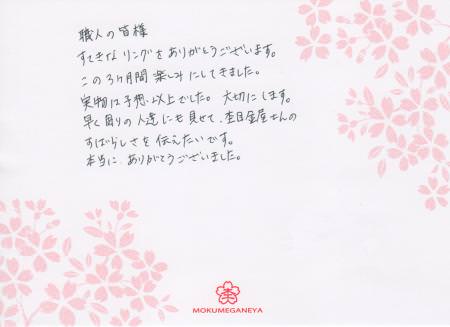 職人の皆様
すてきなリングをありがとうございます。
この3ヶ月間楽しみにしてきました。
実物は予想以上でした。大切にします。
早く周りの人達にも見せて、杢目金屋さんの
すばらしさを伝えたいです。
本当に、ありがとうございました。
MOKUMEGANEYA